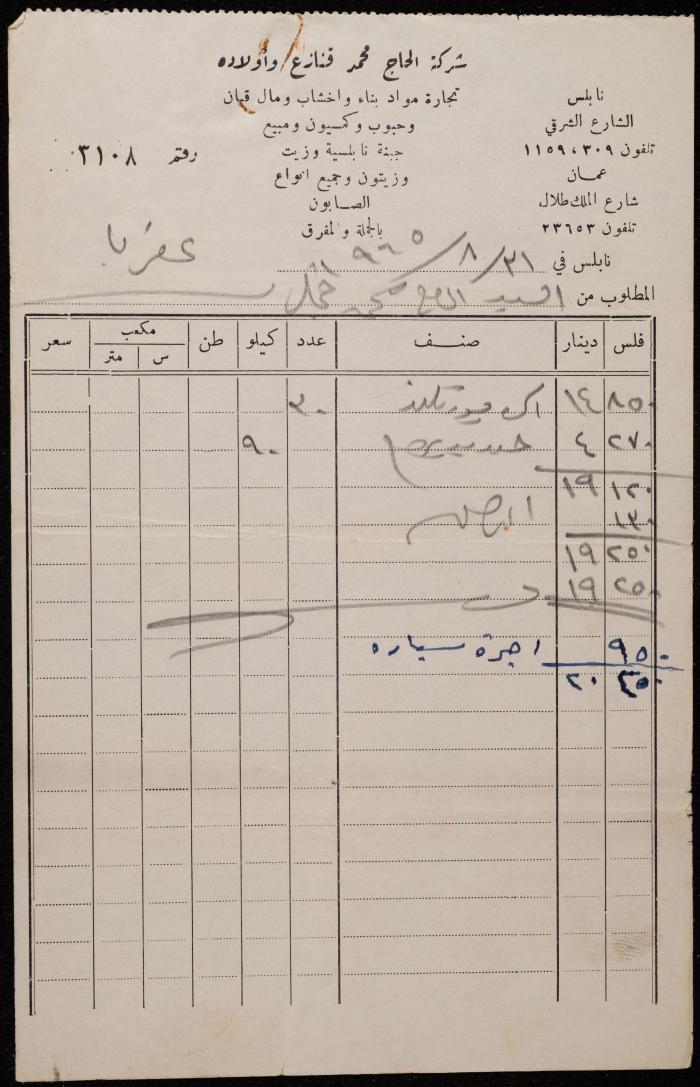 شركة الحاج محمد قنازع وأولاده
تجارة مواد بناء واخشاب ومال قبان
وحبوب وكمسيون ومبيع
جبنة نابلسية وزيت
وزيتون وجميع انواع
الصابون
بالجملة والمفرق
نابلس
الشارع الشرقي
تلفون ٣٠٩ ، ١١٥٩
عمان
شارع الملك طلال
تلفون ٢٣٦٥٣
رقم ٣١٠٨
عقربا
نابلس في ٣١/٨/٩٦٥
المطلوب من السيد الحاج محمد
فلس دينار صنف عدد كيلو طن مكعب سعر
س متر
٨٥٠ ١٤ ٣٠
٢٧٠ ٤ ٩٠
١٢٠ ١٩
١٣٠
٢٥٠ ١٩
٢٥٠ ١٩
٩٥٠ اجرة سياره
٢٠